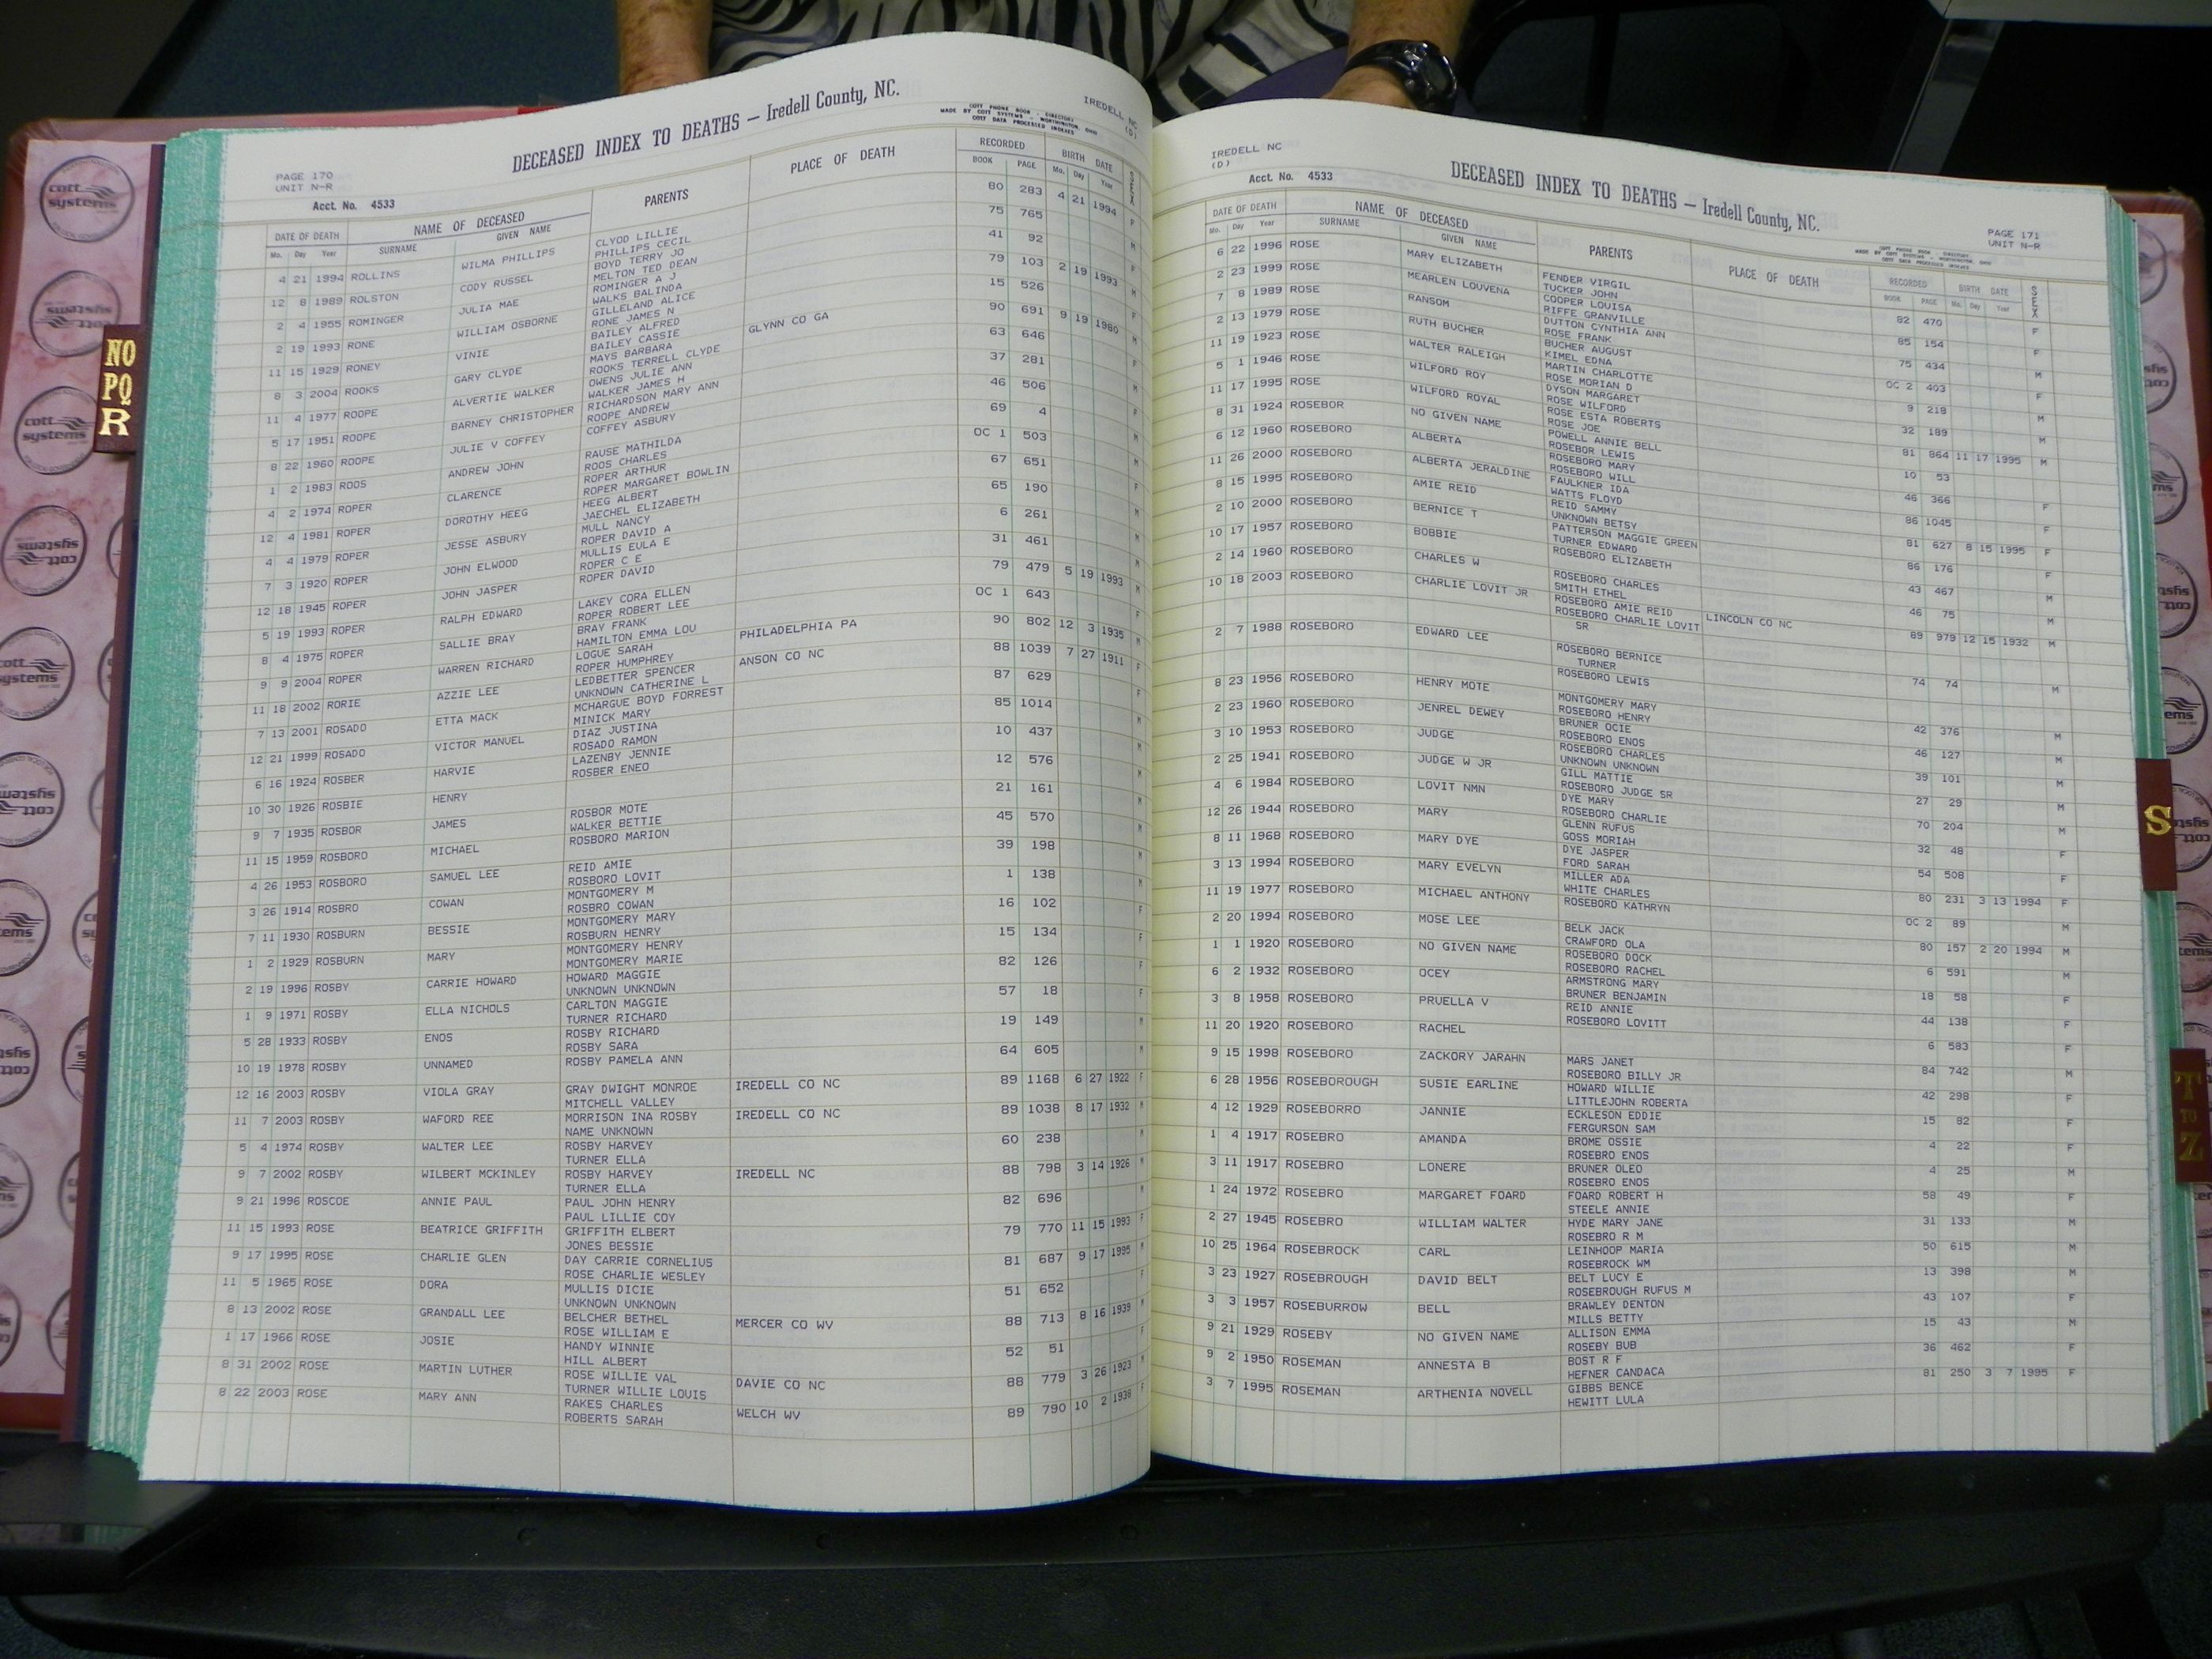 DECEASED INDEX TO DEATHS — Iredell County, NC.
COTT PHONE BOOK - DIRECTORY
MADE BY COTT SYSTEMS - WORTHINGTON, OHIO
COTT DATA PROCESSED INDEXES
IREDELL NC
(D)
PAGE 170
UNIT N-R
Acct. No. 4533
DATE OF DEATH NAME OF DECEASED PARENTS PLACE OF DEATH RECORDED BIRTH DATE SEX
Mo. Day Year SURNAME GIVEN NAME BOOK PAGE Mo. Day Year
4 21 1994 ROLLINS WILMA PHILLIPS CLYOD LILLIE 80 283 4 21 1994 F
PHILLIPS CECIL
12 8 1989 ROLSTON CODY RUSSEL BOYD TERRY JO 75 765 M
MELTON TED DEAN
2 4 1955 ROMINGER JULIA MAE ROMINGER A J 41 92 F
WALKS BALINDA
2 19 1993 RONE WILLIAM OSBORNE GILLELAND ALICE 79 103 2 19 1993 M
RONE JAMES N
11 15 1929 RONEY VINIE BAILEY ALFRED 15 526 F
BAILEY CASSIE
8 3 2004 ROOKS GARY CLYDE MAYS BARBARA GLYNN CO GA 90 691 9 19 1980 M
ROOKS TERRELL CLYDE
11 4 1977 ROOPE ALVERTIE WALKER OWENS JULIE ANN 63 646 F
WALKER JAMES H
5 17 1951 ROOPE BARNEY CHRISTOPHER RICHARDSON MARY ANN 37 281 M
ROOPE ANDREW
8 22 1960 ROOPE JULIE V COFFEY COFFEY ASBURY 46 506 F
1 2 1983 ROOS ANDREW JOHN RAUSE MATHILDA 69 4 M
ROOS CHARLES
4 2 1974 ROPER CLARENCE ROPER ARTHUR OC 1 503 M
ROPER MARGARET BOWLIN
12 4 1981 ROPER DOROTHY HEEG HEEG ALBERT 67 651 F
JAECHEL ELIZABETH
4 4 1979 ROPER JESSE ASBURY MULL NANCY 65 190 M
ROPER DAVID A
7 3 1920 ROPER JOHN ELWOOD MULLIS EULA E 6 261 M
ROPER C E
12 18 1945 ROPER JOHN JASPER ROPER DAVID 31 461 M
5 19 1993 ROPER RALPH EDWARD LAKEY CORA ELLEN 79 479 5 19 1993 M
ROPER ROBERT LEE
8 4 1975 ROPER SALLIE BRAY BRAY FRANK OC 1 643 F
HAMILTON EMMA LOU
9 9 2004 ROPER WARREN RICHARD LOGUE SARAH PHILADELPHIA PA 90 802 12 3 1935 M
ROPER HUMPHREY
11 18 2002 RORIE AZZIE LEE LEDBETTER SPENCER ANSON CO NC 88 1039 7 27 1911 F
UNKNOWN CATHERINE L
7 13 2001 ROSADO ETTA MACK MCHARGUE BOYD FORREST 87 629 F
MINICK MARY
12 21 1999 ROSADO VICTOR MANUEL DIAZ JUSTINA 85 1014 M
ROSADO RAMON
6 16 1924 ROSBER HARVIE LAZENBY JENNIE 10 437 M
ROSBER ENEO
10 30 1926 ROSBIE HENRY 12 576 M
9 7 1935 ROSBOR JAMES ROSBOR MOTE 21 161 M
WALKER BETTIE
11 15 1959 ROSBORO MICHAEL ROSBORO MARION 45 570 M
4 26 1953 ROSBORO SAMUEL LEE REID AMIE 39 198 M
ROSBORO LOVIT
3 26 1914 ROSBRO COWAN MONTGOMERY M 1 138 M
ROSBRO COWAN
7 11 1930 ROSBURN BESSIE MONTGOMERY MARY 16 102 F
ROSBURN HENRY
1 2 1929 ROSBURN MARY MONTGOMERY HENRY 15 134 F
MONTGOMERY MARIE
2 19 1996 ROSBY CARRIE HOWARD HOWARD MAGGIE 82 126 F
UNKNOWN UNKNOWN
1 9 1971 ROSBY ELLA NICHOLS CARLTON MAGGIE 57 18 F
TURNER RICHARD
5 28 1933 ROSBY ENOS ROSBY RICHARD 19 149 M
ROSBY SARA
10 19 1978 ROSBY UNNAMED ROSBY PAMELA ANN 64 605 M
12 16 2003 ROSBY VIOLA GRAY GRAY DWIGHT MONROE IREDELL CO NC 89 1168 6 27 1922 F
MITCHELL VALLEY
11 7 2003 ROSBY WAFORD REE MORRISON INA ROSBY IREDELL CO NC 89 1038 8 17 1932 M
NAME UNKNOWN
5 4 1974 ROSBY WALTER LEE ROSBY HARVEY 60 238 M
TURNER ELLA
9 7 2002 ROSBY WILBERT MCKINLEY ROSBY HARVEY IREDELL NC 88 798 3 14 1926 M
TURNER ELLA
9 21 1996 ROSCOE ANNIE PAUL PAUL JOHN HENRY 82 696
PAUL LILLIE COY
11 15 1993 ROSE BEATRICE GRIFFITH GRIFFITH ELBERT 79 770 11 15 1993 F
JONES BESSIE
9 17 1995 ROSE CHARLIE GLEN DAY CARRIE CORNELIUS 81 687 9 17 1995 M
ROSE CHARLIE WESLEY
11 5 1965 ROSE DORA MULLIS DICIE 51 652 F
UNKNOWN UNKNOWN
8 13 2002 ROSE GRANDALL LEE BELCHER BETHEL MERCER CO WV 88 713 8 16 1939 M
ROSE WILLIAM E
1 17 1966 ROSE JOSIE HANDY WINNIE 52 51 F
HILL ALBERT
8 31 2002 ROSE MARTIN LUTHER ROSE WILLIE VAL DAVIE CO NC 88 779 3 26 1923 M
TURNER WILLIE LOUIS
8 22 2003 ROSE MARY ANN RAKES CHARLES WELCH WV 89 790 10 2 1938 F
ROBERTS SARAH
IREDELL NC
(D)
Acct. No. 4533
DECEASED INDEX TO DEATHS — Iredell County, NC.
PAGE 171
UNIT N-R
DATE OF DEATH NAME OF DECEASED PARENTS PLACE OF DEATH RECORDED BIRTH DATE SEX
Mo. Day Year SURNAME GIVEN NAME BOOK PAGE Mo. Day Year
6 22 1996 ROSE MARY ELIZABETH FENDER VIRGIL 82 470 F
TUCKER JOHN
2 23 1999 ROSE MEARLEN LOUVENA COOPER LOUISA 85 154 F
RIFFE GRANVILLE
7 8 1989 ROSE RANSOM DUTTON CYNTHIA ANN 75 434 M
ROSE FRANK
2 13 1979 ROSE RUTH BUCHER BUCHER AUGUST OC 2 403 F
KIMEL EDNA
11 19 1923 ROSE WALTER RALEIGH MARTIN CHARLOTTE 9 218 M
ROSE MORIAN D
5 1 1946 ROSE WILFORD ROY DYSON MARGARET 32 189 M
ROSE WILFORD
11 17 1995 ROSE WILFORD ROYAL ROSE ESTA ROBERTS 81 864 11 17 1995 M
ROSE JOE
8 31 1924 ROSEBOR NO GIVEN NAME POWELL ANNIE BELL 10 53
ROSEBOR LEWIS
6 12 1960 ROSEBORO ALBERTA ROSEBORO MARY 46 366 F
ROSEBORO WILL
11 26 2000 ROSEBORO ALBERTA JERALDINE FAULKNER IDA 86 1045 F
WATTS FLOYD
8 15 1995 ROSEBORO AMIE REID REID SAMMY 81 627 8 15 1995 F
UNKNOWN BETSY
2 10 2000 ROSEBORO BERNICE T PATTERSON MAGGIE GREEN 86 176 F
TURNER EDWARD
10 17 1957 ROSEBORO BOBBIE ROSEBORO ELIZABETH 43 467 M
2 14 1960 ROSEBORO CHARLES W ROSEBORO CHARLES 46 75 M
SMITH ETHEL
10 18 2003 ROSEBORO CHARLIE LOVIT JR ROSEBORO AMIE REID LINCOLN CO NC 89 979 12 15 1932 M
ROSEBORO CHARLIE LOVIT
SR
2 7 1988 ROSEBORO EDWARD LEE ROSEBORO BERNICE 74 74 M
TURNER
ROSEBORO LEWIS
8 23 1956 ROSEBORO HENRY MOTE MONTGOMERY MARY 42 376 M
ROSEBORO HENRY
2 23 1960 ROSEBORO JENREL DEWEY BRUNER OCIE 46 127 M
ROSEBORO ENOS
3 10 1953 ROSEBORO JUDGE ROSEBORO CHARLES 39 101 M
UNKNOWN UNKNOWN
2 25 1941 ROSEBORO JUDGE W JR GILL MATTIE 27 29 M
ROSEBORO JUDGE SR
4 6 1984 ROSEBORO LOVIT NMN DYE MARY 70 204 M
ROSEBORO CHARLIE
12 26 1944 ROSEBORO MARY GLENN RUFUS 32 48 F
GOSS MORIAH
8 11 1968 ROSEBORO MARY DYE DYE JASPER 54 508 F
FORD SARAH
3 13 1994 ROSEBORO MARY EVELYN MILLER ADA 80 231 3 13 1994 F
WHITE CHARLES
11 19 1977 ROSEBORO MICHAEL ANTHONY ROSEBORO KATHRYN OC 2 89 M
2 20 1994 ROSEBORO MOSE LEE BELK JACK 80 157 2 20 1994 M
CRAWFORD OLA
1 1 1920 ROSEBORO NO GIVEN NAME ROSEBORO DOCK 6 591 M
ROSEBORO RACHEL
6 2 1932 ROSEBORO OCEY ARMSTRONG MARY 18 58 F
BRUNER BENJAMIN
3 8 1958 ROSEBORO PRUELLA V REID ANNIE 44 138 F
ROSEBORO LOVITT
11 20 1920 ROSEBORO RACHEL 6 583 F
9 15 1998 ROSEBORO ZACKORY JARAHN MARS JANET 84 742 M
ROSEBORO BILLY JR
6 28 1956 ROSEBOROUGH SUSIE EARLINE HOWARD WILLIE 42 298 F
LITTLEJOHN ROBERTA
4 12 1929 ROSEBORRO JANNIE ECKLESON EDDIE 15 82 F
FERGURSON SAM
1 4 1917 ROSEBRO AMANDA BROME OSSIE 4 22 F
ROSEBRO ENOS
3 11 1917 ROSEBRO LONERE BRUNER OLEO 4 25 M
ROSEBRO ENOS
1 24 1972 ROSEBRO MARGARET FOARD FOARD ROBERT H 58 49 F
STEELE ANNIE
2 27 1945 ROSEBRO WILLIAM WALTER HYDE MARY JANE 31 133 M
ROSEBRO R M
10 25 1964 ROSEBROCK CARL LEINHOOP MARIA 50 615 M
ROSEBROCK WM
3 23 1927 ROSEBROUGH DAVID BELT BELT LUCY E 13 398 M
ROSEBROUGH RUFUS M
3 3 1957 ROSEBURROW BELL BRAWLEY DENTON 43 107 F
MILLS BETTY
9 21 1929 ROSEBY NO GIVEN NAME ALLISON EMMA 15 43 M
ROSEBY BUB
9 2 1950 ROSEMAN ANNESTA B BOST R F 36 462 F
HEFNER CANDACA
3 7 1995 ROSEMAN ARTHENIA NOVELL GIBBS BENCE 81 250 3 7 1995 F
HEWITT LULA
NO
PQ
R
S
T
TO
Z
cott
systems